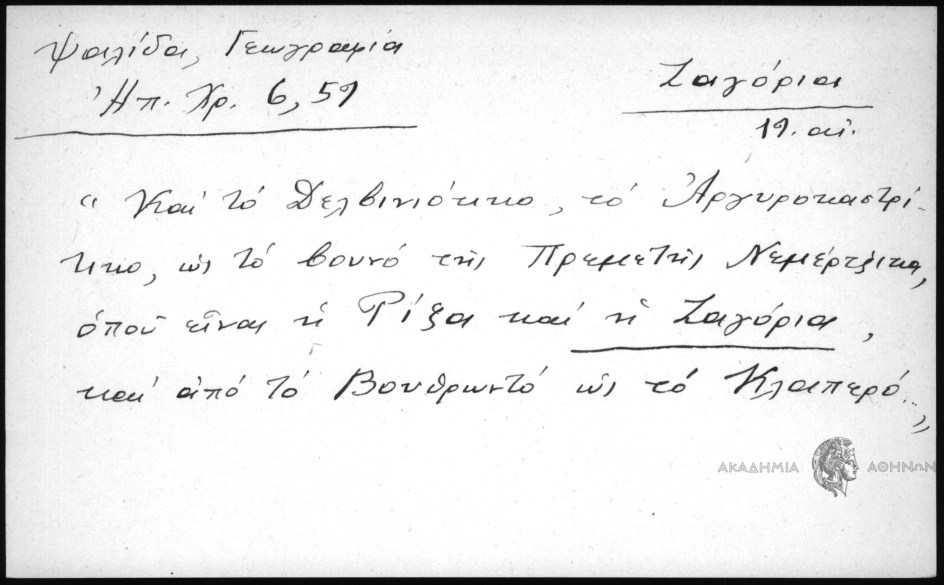 Ψαλίδα, Γεωγραφία
Ἠπ. Χρ. 6, 59
Ζαγόρια
19. αἰ.
“ Καί τό Δελβινιότικο, τό Ἀργυροκαστρί-
τικο, ὡς τό βουνό τῆς Πρεμετῆς Νεμέρτζικα,
ὁπού εἶναι ἡ Ρίζα καί ἡ Ζαγόρια,
καί ἀπό τό Βουθρωντό ὡς τό Κλαπερό..„
ΑΚΑΔΗΜΙΑ ΑΘΗΝΩΝ